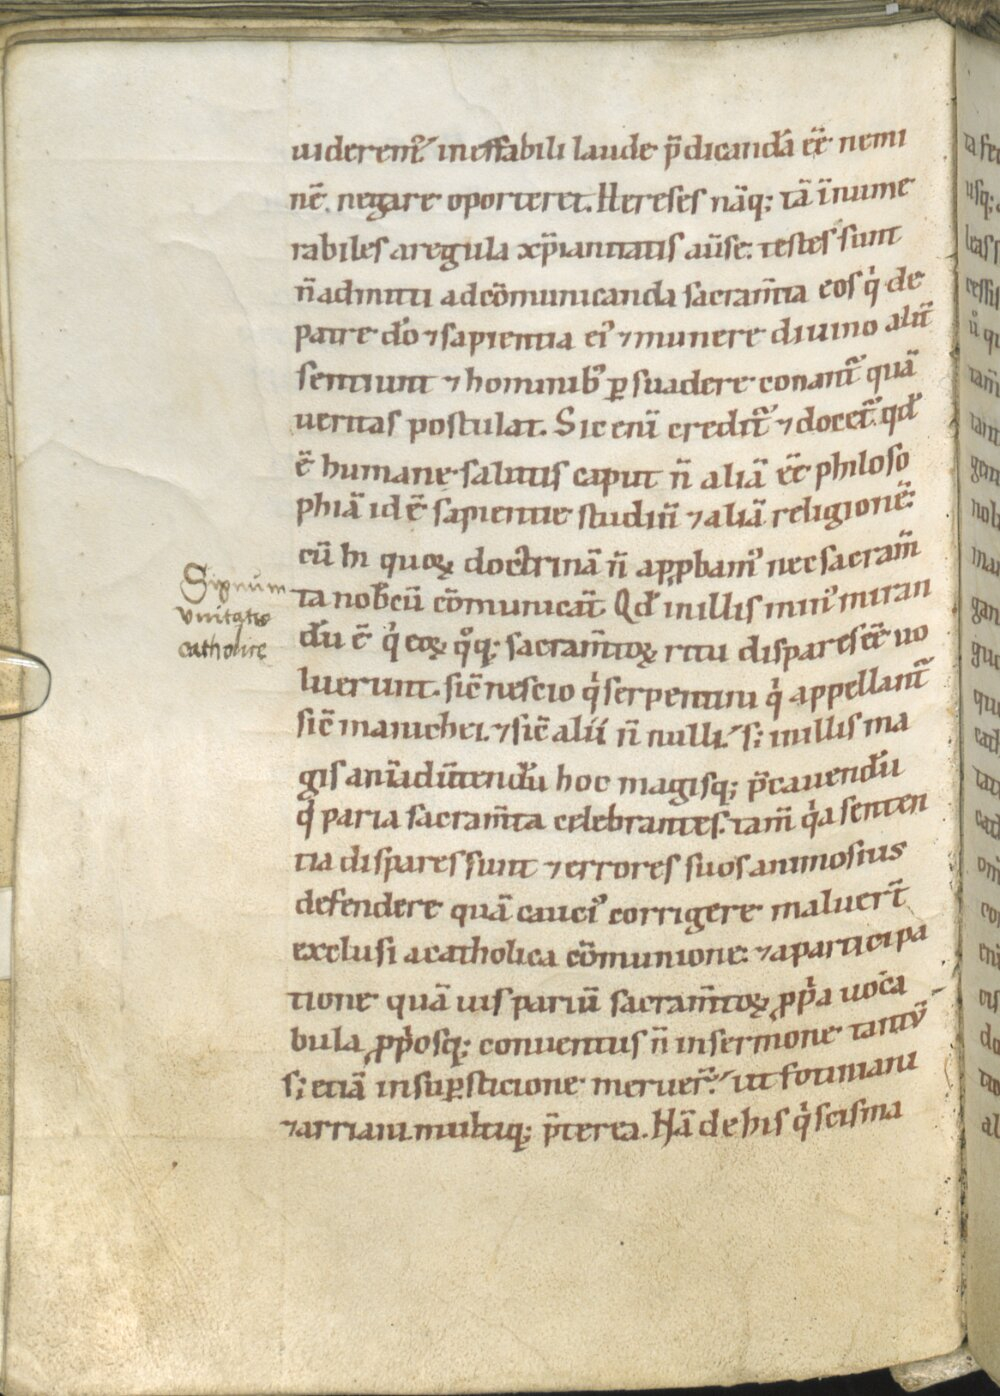 uiderent᷑ ineffabili laude p̄dicanda᷑ eē nemi
nē. negare oporteret. Hereses nāq; tā inume
rabiles aregula xp̄ianitatis aūse: testes sunt
n̄ admitti adcōmunicanda sacram̄ta eos qͥ de
patre do᷑ ⁊ sapientia ei᷒ ⁊ munere diuino alit᷑
sentiunt ⁊ hominib᷒ ꝑsuadere conant᷑ quā
ueritas postulat. Sic enī credit᷑ ⁊ docet᷑. qd᷑
ē humane salutis caput n̄ aliā eē philoso
phiā id ē sapientie studiū ⁊ aliā religionē.
cū hi quoꝝ doctrinā n̄ apꝓbam᷒ nec sacram̄
ta nobcū cōmunicāt. Qd᷑ in illis min᷒ miran
du᷑ ē qͥ eoꝝ qͦq; sacram̄toꝝ ritu dispares eē uo
luerunt. sic̄ nescio qͥ serpentini qͥ appellant᷑
sic̄ manichei. ⁊ sic̄ alii n̄ nulli. s; in illis ma
gis anīaduertendu᷑ hoc magisq; p̄cauendu᷑
qͥ paria sacram̄ta celebrantes. tam̄ qͥa senten
tia dispares sunt ⁊ errores suos animosius
defendere quā cauci᷒ corrigere maluer̄t
exclusi acatholica cōmunione: ⁊ aparticipa
tione quā uis pariū sacram̄toꝝ ꝓpͥa uoca
bula ꝓpͥosq; conuentus n̄ insermone tantū
s; etiā insuꝑsticione meruer̄. ut fotiniani
⁊ arriani. multiq; p̄terea. Nā de his qͥ scisma
Signum
vnitatis
catholice